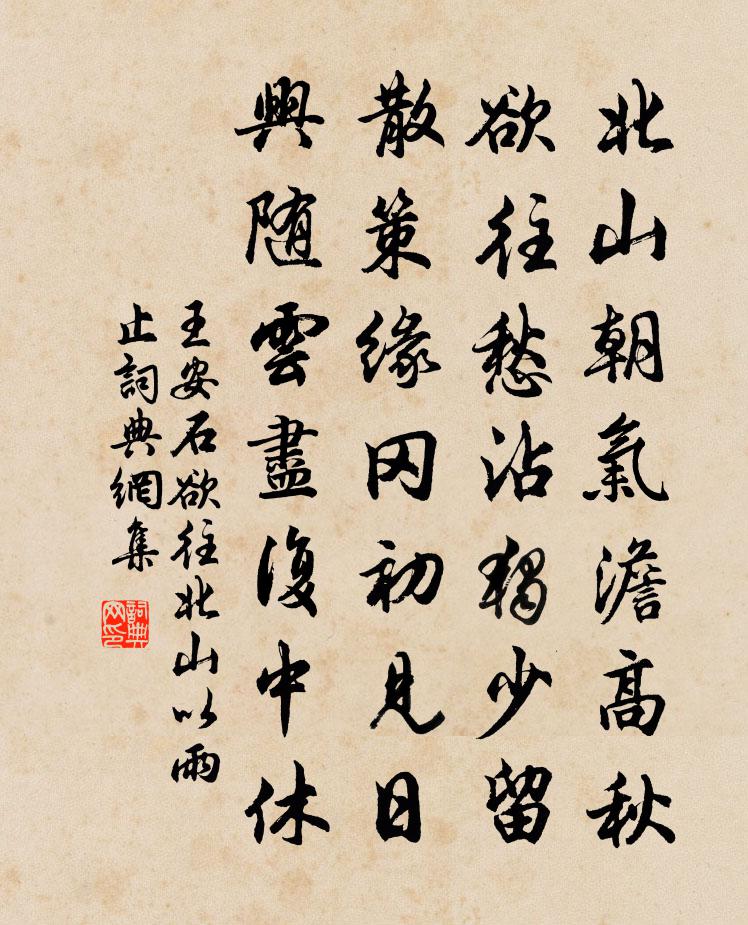 北山朝氣澹高秋
欲往愁沾獨少留
散策緣冈初見日
興随雲盡復中休
王安石欲往北山以雨
止詞典網集
詞典
网印